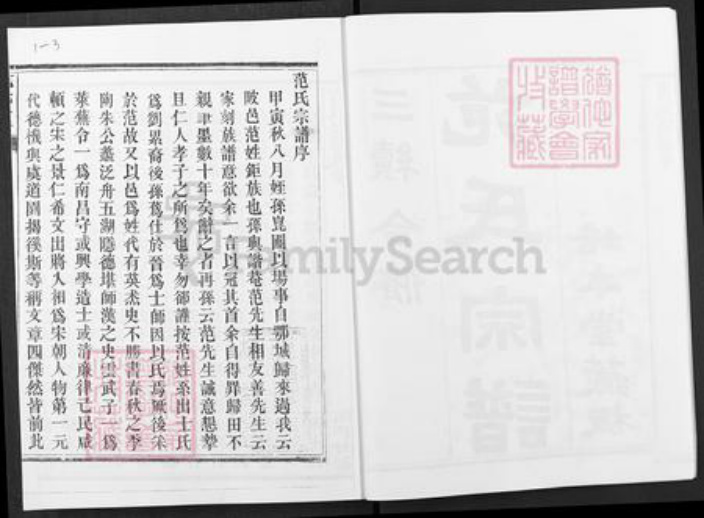 1-3
范氏宗譜序
甲寅秋八月姪孫崑圃以場事自鄂城歸來過我云
陂邑范姓鉅族也孫與諧菴范先生相友善先生云
家刻族譜意欲余一言以冠其首余自得罪歸田不
親筆墨數十年矣辭之者再孫云范先生誠意懇摯
且仁人孝子之所為也幸勿卻謹按范姓系出士氏
為劉累裔後孫蒍仕於晉為士師因以氏焉厥後采
於范故又以邑為姓代有英杰史不勝書春秋之季
陶朱公蠡泛舟五湖隱德堪師漢之史雲武子一為
萊蕪令一為南昌守或興學造士或清廉律己民咸
頼之宋之景仁希文出將入相為宋朝人物第一元
代德機與虞道園揭徯斯等稱文章四傑然皆前此
FamilySearch
范氏宗譜
三續合修